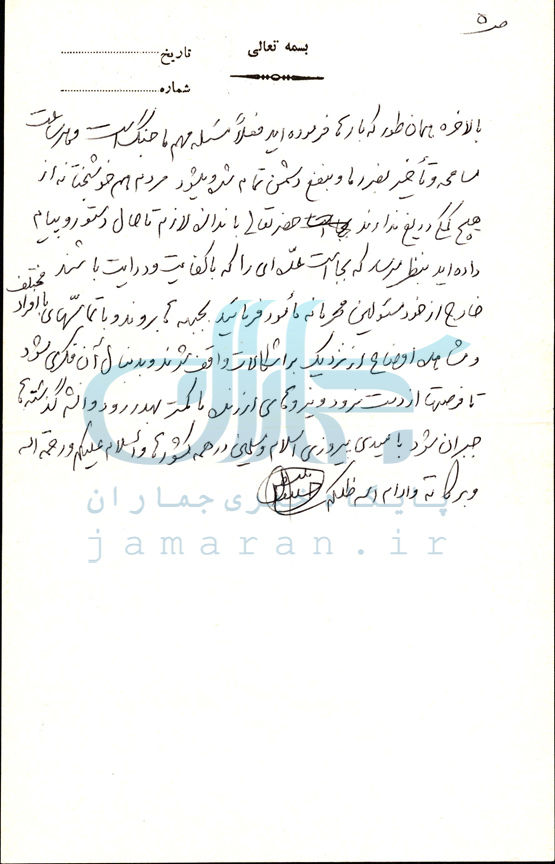 ص ۵
بسمه تعالی
تاریخ
شماره
بالاخره همان طور که بارها فرموده اید فعلاً مسئله مهم ما جنگ است و هر ساعت
مسامحه و تأخیر بضرر ما و بنفع دشمن تمام شده و میشود مردم هم خوشبختانه از
هیچ کمکی دریغ ندارند حضرتعالی باندازه لازم تا حال دستور و پیام
داده اید بنظر میرسد که بجا است عده ای را که با کفایت و درایت باشند
خارج از خود مسئولین محرمانه مأمور فرمائید بجبهه ها بروند و با تماسهای با افراد مختلف
و مشاهده اوضاع از نزدیک بر اشکالات واقف شوند و بدنبال آن فکری شود
تا فرصتها از دست نرود و نیروهای ارزنده ما کمتر بهدر رود و انشاءالله گذشته ها
جبران شود با امیدی پیروزی اسلام و مسلمین در همه کشورها والسلام علیکم و رحمة الله
و برکاته و ادام الله ظلکم
پایگاه خبری جماران
jamaran.ir